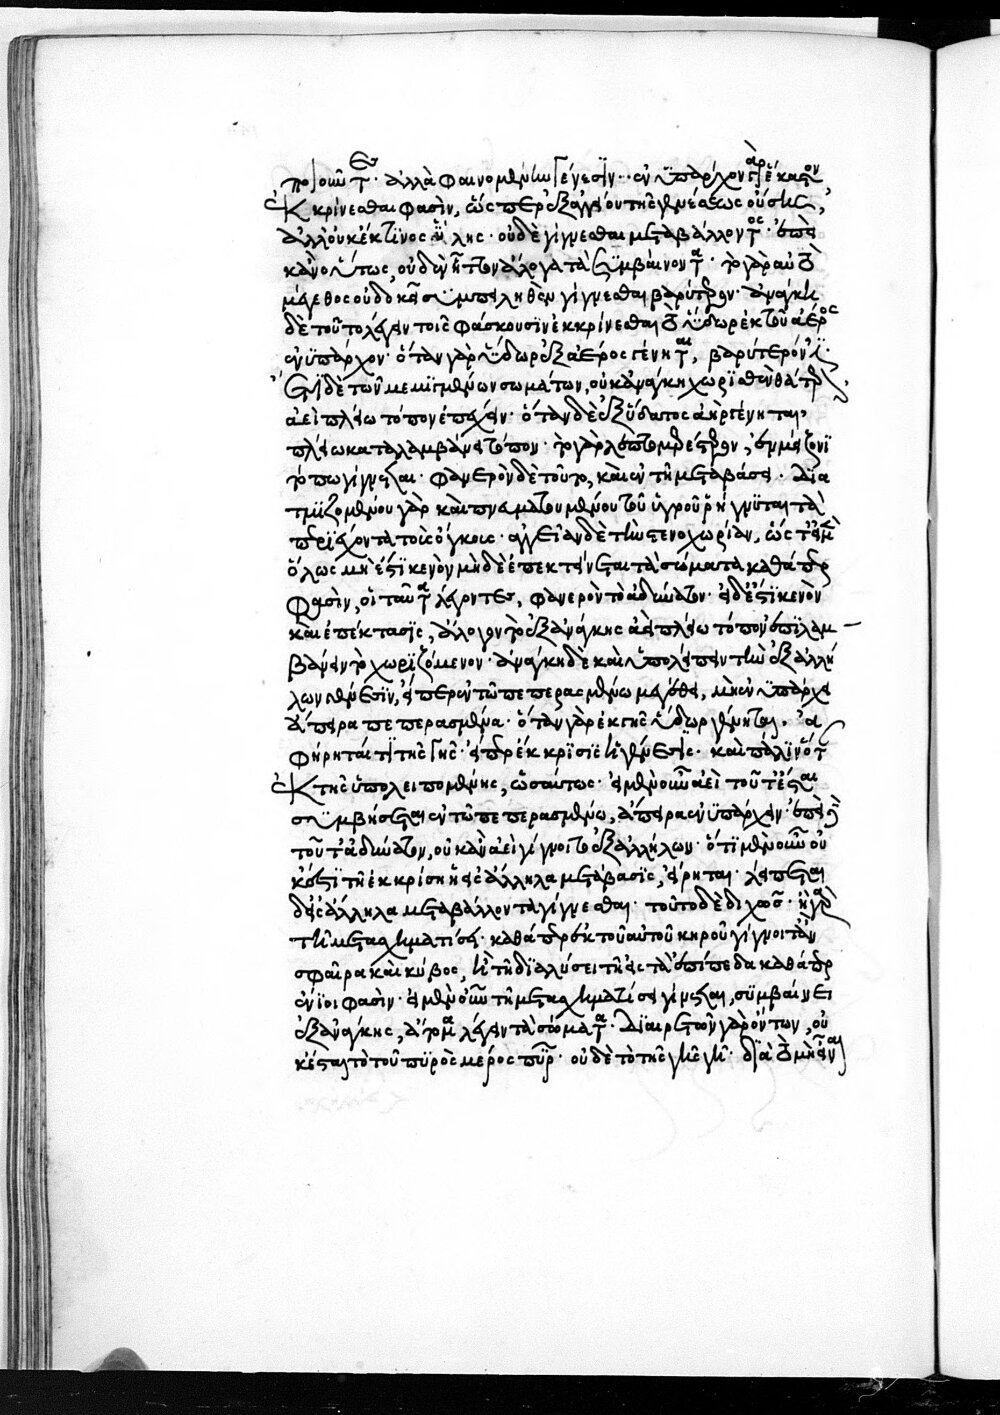 ποιοῦντες· ἀλλὰ φαινομένην γένεσϊν· ἐνϋπάρχον γὰρ ἕκαστον
ἐκκρίνεσθαι φασὶν, ὥσπερ ἐξ ἀγγείου τῆς γενέσεως οὔσης,
ἀλλ' οὐκ ἔκ τϊνος ὕλης· οὐδὲ γίγνεσθαι μεταβάλλοντος· ἔπειτα
κἂν οὕτως, οὐδὲν ἧττον ἄλογα τὰ συμβαίνοντα· τὸ γὰρ αὐτὸ
μέγεθος οὐ δοκεῖ συμπεληθὲν γίγνεσθαι βαρύτερον· ἀνάγκη
δὲ τοῦτο λέγειν τοῖς φάσκουσϊν ἐκκρίνεσθαι τὸ ὕδωρ ἐκ τοῦ ἀέρος
ἐνϋπάρχον· ὅταν γὰρ ὕδωρ ἐξ ἀέρος γένηται, βαρύτερόν ἐστϊ·
ἔτϊ δὲ τῶν μεμϊγμένων σωμάτων, οὐκ ἀνάγκη χωρϊσθὲν θάτερον
ἀεὶ πλείω τόπον ἐπέχειν· ὅταν δὲ ἐξ ὕδατος ἀὴρ γένηται,
πλείω καταλαμβάνει τόπον· τὸ γὰρ λεπτομερέστερον, ἐν μείζονϊ
τόπω γίγνεται· φανερὸν δὲ τοῦτο, καὶ ἐν τῆ μεταβάσει· δϊα
τμϊζομένου γὰρ καὶ πνευματουμένου τοῦ ὑγροῦ ῥήγνϋται τὰ
περϊέχοντα τοὺς ὄγκους ἀγγεῖα διὰ τὴν στενοχωρίαν, ὥστ' εἰ μὲν
ὅλως μὴ ἔστϊ κενὸν μηδὲ ἐπεκτείνεται τὰ σώματα καθάπερ
φασὶν, οἱ ταῦτα λέγοντες, φανερὸν τὸ ἀδύνατον· εἰ δ' ἔστϊ κενὸν
καὶ ἐπέκτασϊς, ἄλογον τὸ ἐξ ἀνάγκης ἀεὶ πλείω τόπον ἐπϊλαμ
βάνειν τὸ χωρϊζόμενον· ἀνάγκη δὲ καὶ ὑπολείπειν τὴν ἐξ ἀλλή
λων γένεσϊν, εἴπερ ἐν τῶ πεπερασμένω μεγέθει, μὴ ἐνϋπάρχει
ἄπειρα πεπερασμένα· ὅταν γὰρ ἐκ γῆς ὕδωρ γένηται, ἀ
φήρηταί τϊ τῆς γῆς· εἴπερ ἐκκρϊσις ἡ γένεσϊς· καὶ πάλϊν ὅταν
ἐκ τῆς ὑπολειπομένης, ὡσαύτως· εἰ μὲν οὖν ἀεὶ τοῦτ' ἔσται
συμβήσεται ἐν τῶ πεπερασμένω, ἄπειρα ἐνϋπάρχειν· ἐπεὶ δὲ
τοῦτ' ἀδύνατον, οὐκ ἂν ἀεὶ γίγνοιτο ἐξ ἀλλήλων· ὅτι μὲν οὖν οὐ
κ ἔστϊ τῆ ἐκκρίσει ἡ εἰς ἄλληλα μετάβασϊς, εἴρηται· λείπεται
δ' εἰς ἄλληλα μεταβάλλοντα γίγνεσθαι· τοῦτο δὲ διχῶς· ἢ γὰρ
τῆ μετασχηματίσει· καθάπερ ἐκ τοῦ αὐτοῦ κηροῦ γίγνοιτ' ἂν
σφαῖρα καὶ κύβος, ἢ τῆ δϊαλύσει τῆ εἰς τὰ ἐπίπεδα καθάπερ
ἔνϊοι φασὶν· εἰ μὲν οὖν τῆ μετασχηματίσει γίνεται, συμβαίνει
ἐξ ἀνάγκης, ἄτομα λέγειν τὰ σώματα· δϊαιρετῶν γὰρ ὄντων, οὐ
κ ἔσται τὸ τοῦ πϋρὸς μέρος πῦρ· οὐδὲ τὸ τῆς γῆς γῆ· δϊὰ τὸ μὴ εἶναι